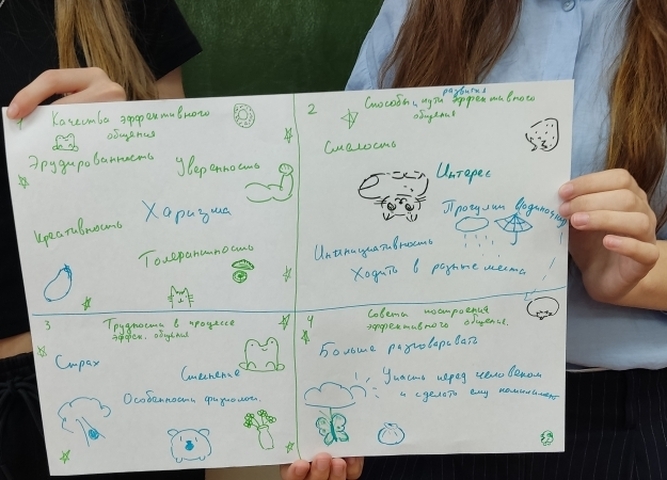 1 Качества эффективного
общения
Эрудированность
Уверенность
Харизма
Креативность
Толерантность
2 Способы и пути развития эффективного
общения
Смелость
Интерес
Прогулки
Ининициативность
Ходить в разные места
3 Трудности в процессе
эффек. общения
Страх
Стеснение
Особенности физиолог.
4 Советы построения
эффективного общения.
Больше разговаривать
перед человеком
и сделать ему комплимент